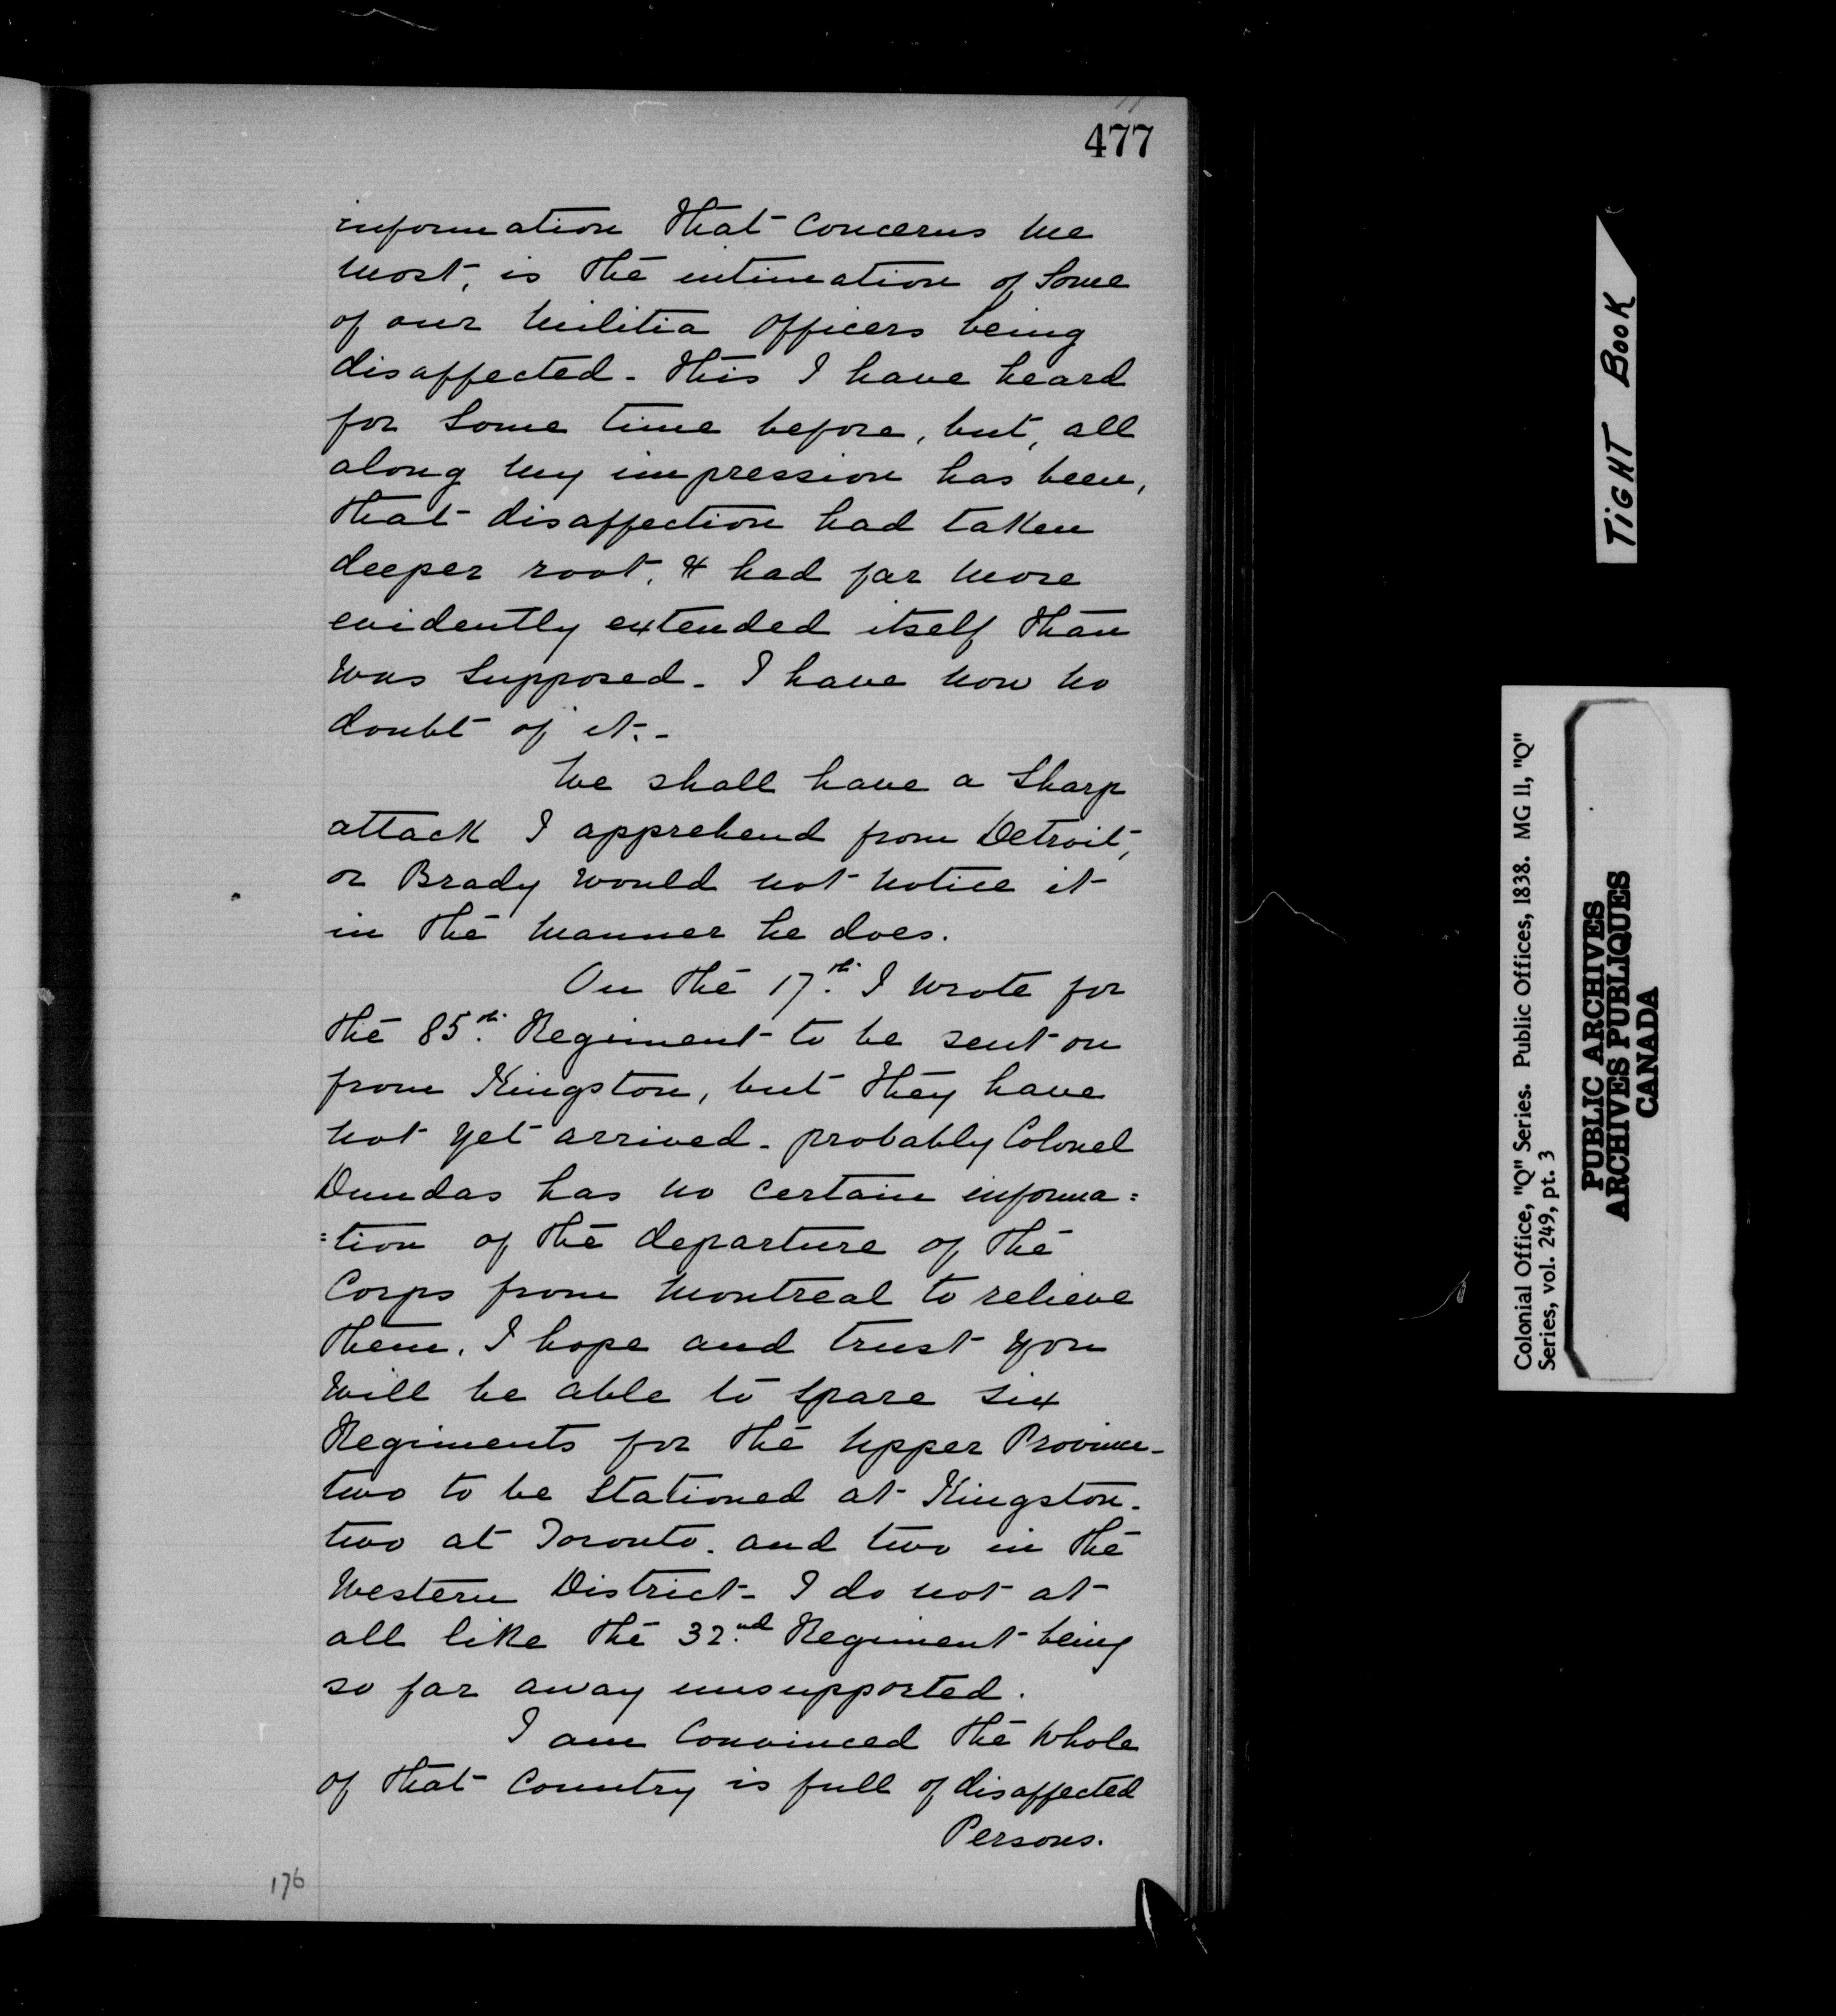 477
information that concerns me
most, is the intimation of some
of our Militia Officers being
disaffected - this I have heard
for some time before, but, all
along my impression has been,
that disaffection had taken
deeper root, & had far more
evidently extended itself than
was supposed - I have now no
doubt of it. -
We shall have a sharp
attack I apprehend from Detroit,
or Brady would not notice it
in the manner he does.
On the 17th. I wrote for
the 85th. Regiment to be sent on
from Kingston, but they have
not yet arrived - probably Colonel
Dundas has no certain informa=
=tion of the departure of the
Corps from Montreal to relieve
them. I hope and trust you
will be able to spare six
Regiments for the Upper Province -
two to be stationed at Kingston -
two at Toronto. and two in the
Western District - I do not at
all like the 32.nd Regiment being
so far away unsupported.
I am convinced the whole
of that Country is full of disaffected
Persons.
176
TIGHT BOOK
Colonial Office, "Q" Series. Public Offices, 1838. MG 11, "Q"
Series, vol. 249, pt. 3
PUBLIC ARCHIVES
ARCHIVES PUBLIQUES
CANADA